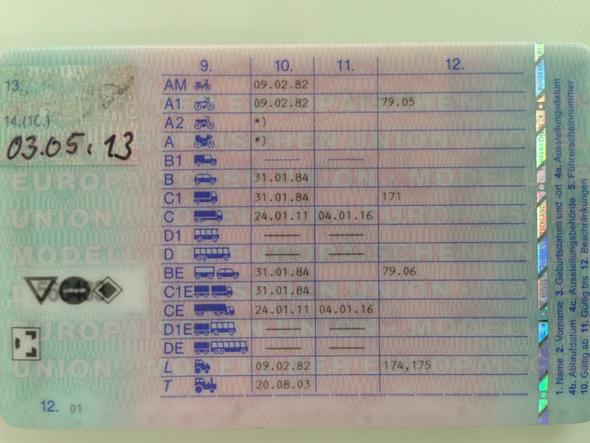 9. 10. 11. 12.
13.
AM 09.02.82
A1 09.02.82 79.05
14.(10.)
A2 *)
03.05.13
A *)
B1
B 31.01.84
C1 31.01.84 171
C 24.01.11 04.01.16
D1
D
BE 31.01.84 79.06
C1E 31.01.84
CE 24.01.11 04.01.16
D1E
DE
L 09.02.82 174,175
T 20.08.03
12. 01
EUROP
UNION
MODEL
EUROP
UNION
1. Name 2. Vorname 3. Geburtsdatum und -ort 4a. Ausstellungsdatum
4b. Ablaufdatum 4c. Ausstellungsbehörde 5. Führerscheinnummer
10. Gültig ab 11. Gültig bis 12. Beschränkungen